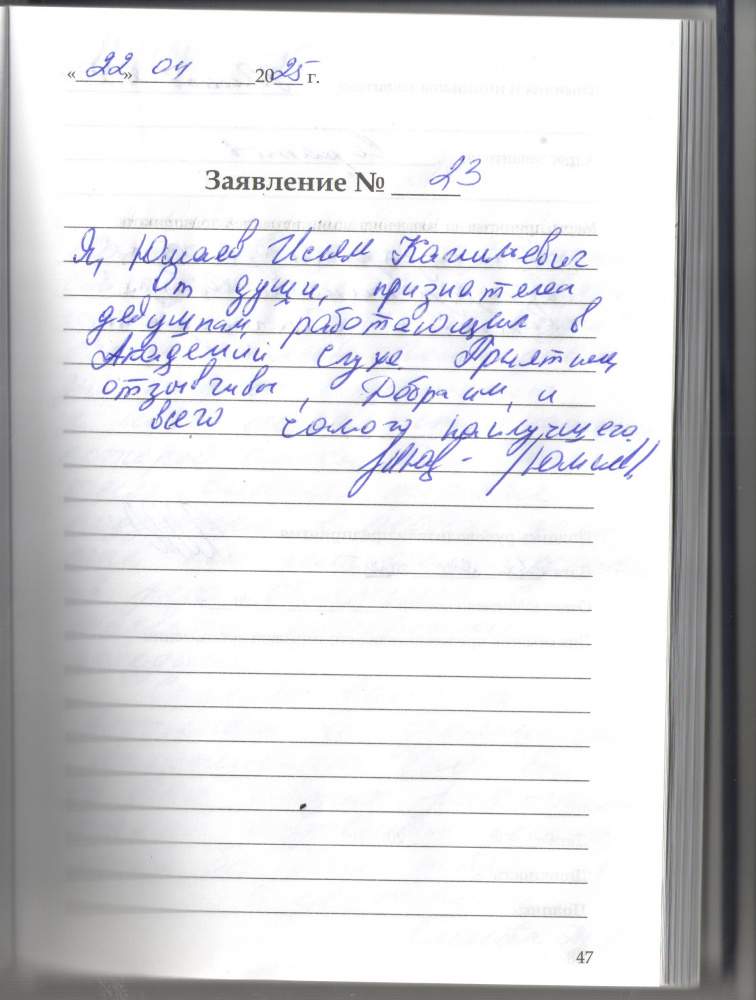 « 22 » 04 2025 г.
Заявление № 23
Я, Юмаев Ислам Каримевич
От души, признателен
девушкам работающим в
Академии слуха Приятны
отзывчивы, Добра им, и
всего самого наилучшего.
47